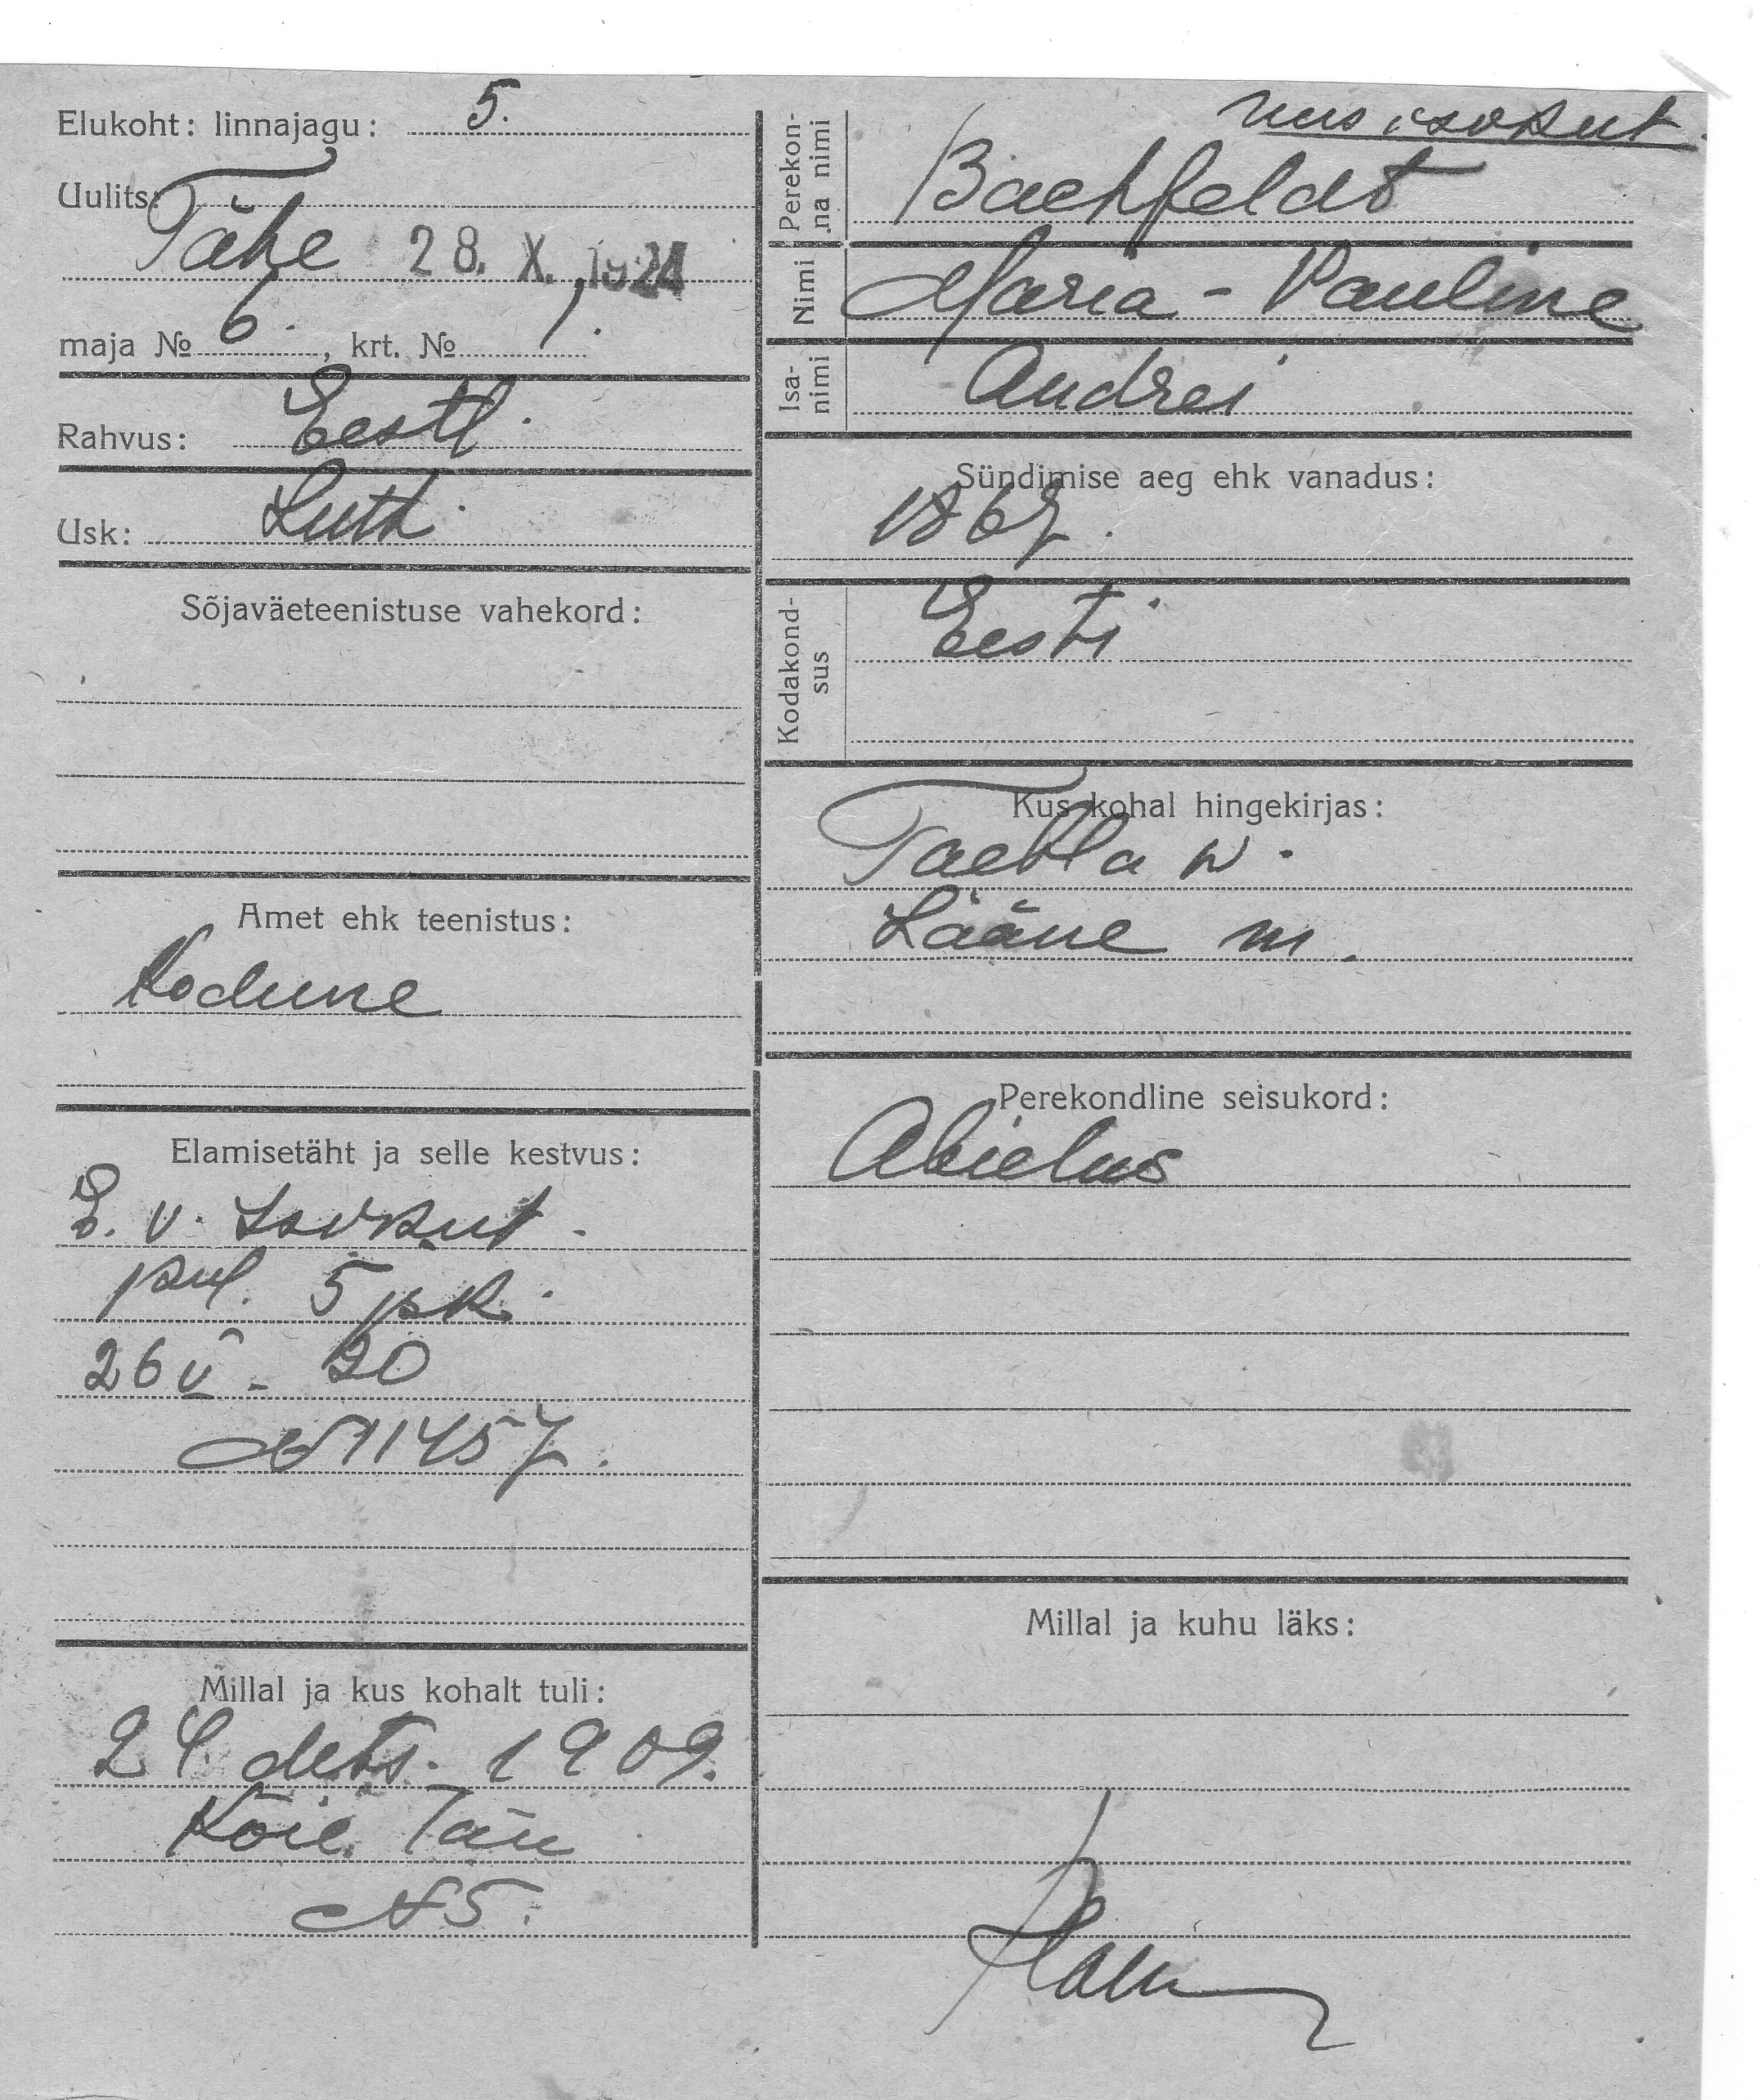 Elukoht: linnajagu: 5.
Uulits:
Tähe 28. X. 1924
maja № 6. , krt. № 1.
Rahvus: Eestl.
Usk: Luth.
Sõjaväeteenistuse vahekord:
Amet ehk teenistus:
Kodune
Elamisetäht ja selle kestvus:
E. v. Isikut.
5 pk.
26 V - 20
№ 11457.
Millal ja kus kohalt tuli:
24. dets. 1909.
Kõie tän
№ 5.
uus isikut.
Perekonna nimi Bachfeldt
Nimi Maria - Pauline
Isanimi Andrei
Sündimise aeg ehk vanadus:
1867.
Kodakondsus Eesti
Kus kohal hingekirjas:
Taebla w.
Lääne m.
Perekondline seisukord:
Abielus
Millal ja kuhu läks: